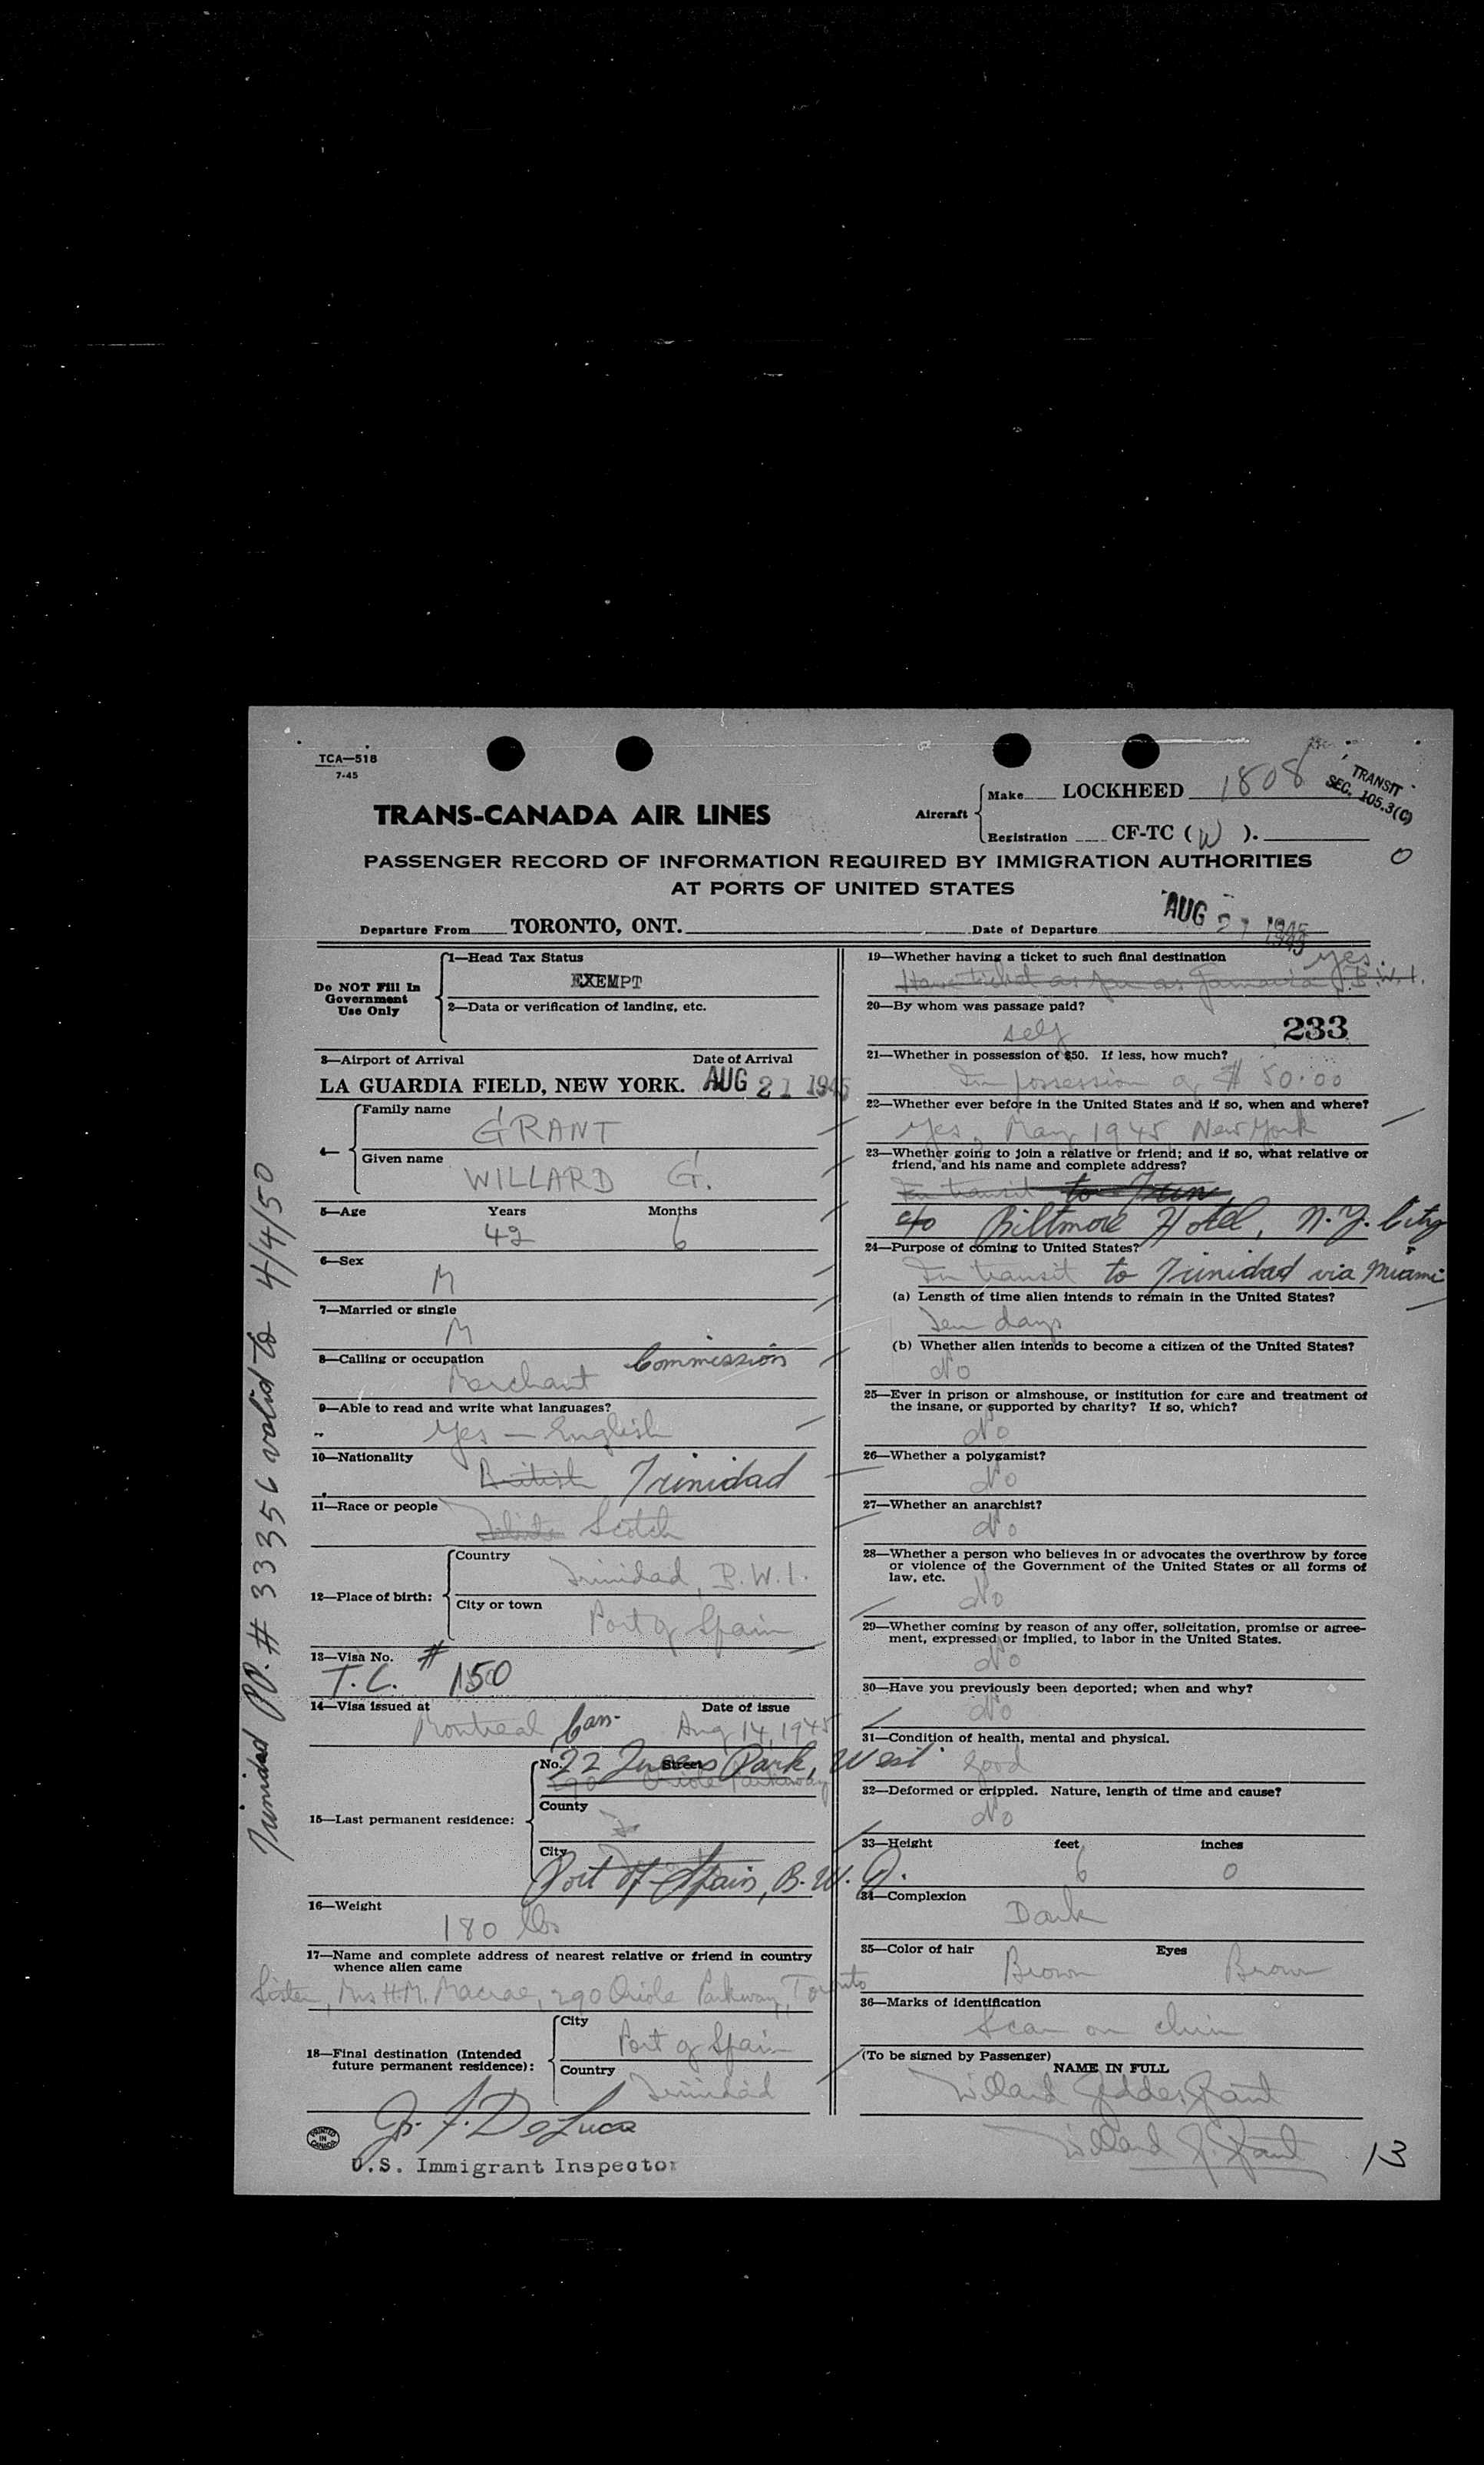 TCA—518
7-45
TRANS-CANADA AIR LINES
Aircraft
Make LOCKHEED 1808
Registration CF-TC ( W ).
TRANSIT
SEC. 105.3(C)
0
PASSENGER RECORD OF INFORMATION REQUIRED BY IMMIGRATION AUTHORITIES
AT PORTS OF UNITED STATES
Departure From TORONTO, ONT. Date of Departure AUG 21 1945
Do NOT Fill In
Government
Use Only
1—Head Tax Status
EXEMPT
2—Data or verification of landing, etc.
3—Airport of Arrival Date of Arrival
LA GUARDIA FIELD, NEW YORK. AUG 21 1945
4— Family name
GRANT
Given name
WILLARD G.
5—Age Years Months
42 6
6—Sex
M
7—Married or single
M
8—Calling or occupation
Merchant Commission
9—Able to read and write what languages?
Yes — English
10—Nationality
British Trinidad
11—Race or people
White Scotch
12—Place of birth:
Country
Trinidad, B.W.I.
City or town
Port of Spain
13—Visa No.
T.C. # 150
14—Visa issued at Date of issue
Montreal Can. Aug 14, 1945
15—Last permanent residence:
No. Street
22 Queens Park, West
290 Oriole Parkway
County
City
Port of Spain, B.W.I.
16—Weight
180 lbs
17—Name and complete address of nearest relative or friend in country
whence alien came
Sister, Mrs H.M. Macrae, 290 Oriole Parkway, Toronto
18—Final destination (Intended
future permanent residence):
City
Port of Spain
Country
Trinidad
G. F. DeLuca
U.S. Immigrant Inspector
PRINTED
IN
CANADA
Trinidad PP. # 33356 valid to 4/4/50
19—Whether having a ticket to such final destination
Yes.
Have ticket as far as Jamaica, B.W.I.
20—By whom was passage paid?
self
233
21—Whether in possession of $50. If less, how much?
In possession of $ 50.00
22—Whether ever before in the United States and if so, when and where?
Yes, May 1945, New York
23—Whether going to join a relative or friend; and if so, what relative or
friend, and his name and complete address?
In transit to Trin
c/o Biltmore Hotel, N.Y. City
24—Purpose of coming to United States?
In transit to Trinidad via Miami
(a) Length of time alien intends to remain in the United States?
Ten days
(b) Whether alien intends to become a citizen of the United States?
No
25—Ever in prison or almshouse, or institution for care and treatment of
the insane, or supported by charity? If so, which?
No
26—Whether a polygamist?
No
27—Whether an anarchist?
No
28—Whether a person who believes in or advocates the overthrow by force
or violence of the Government of the United States or all forms of
law, etc.
No
29—Whether coming by reason of any offer, solicitation, promise or agree-
ment, expressed or implied, to labor in the United States.
No
30—Have you previously been deported; when and why?
No
31—Condition of health, mental and physical.
Good
32—Deformed or crippled. Nature, length of time and cause?
No
33—Height feet inches
6 0
34—Complexion
Dark
35—Color of hair Eyes
Brown Brown
36—Marks of identification
Scar on chin
(To be signed by Passenger)
NAME IN FULL
Willard Geddes Grant
Willard G. Grant
13